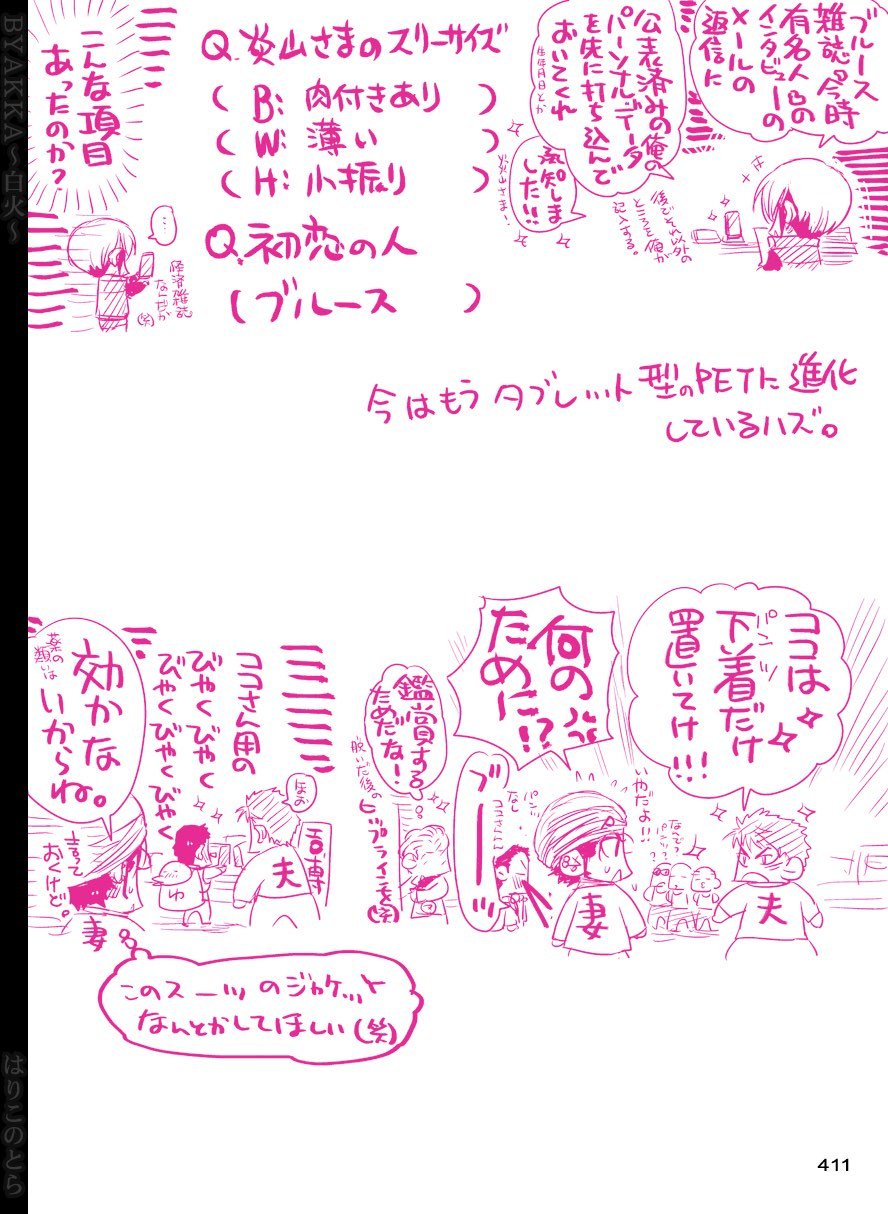 ブルース
雑誌の今時
有名人Bの
インタビューの
メールの
返信に
公表済みの俺の
パーソナルデータ
を先に打ち込んで
おいてくれ
生年月日とか
承知しま
した!!
炎山さま…
後でそれ以外の
ところを俺が
記入する。
Q.炎山さまのスリーサイズ
(B:肉付きあり)
(W:薄い)
(H:小振り)
Q.初恋の人
(ブルース)
こんな項目
あったのか?
…
経済雑誌
なんだが
(笑)
今はもうタブレット型のPETに進化
しているハズ。
ココは
下着だけ
パンツ
置いてけ!!!
いやだよ!!
なんで?
パンツ??
夫
何の
ために!?
妻
ブーッ
ココさん
パンツ
なし
鑑賞する
ためだな!
脱いだ後の
ヒップラインを(笑)
ココさん用の
びやくびやく
びやくびやくびやく
ほお
夫
ゆ
効かな
いからね。
薬の
類いは
言って
おくけど。
妻
このスーツのジャケット
なんとかしてほしい(笑)
411
BYAKKA～白火～
はりこのとら